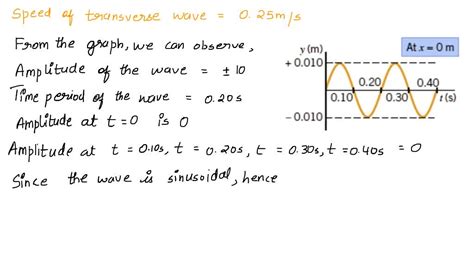 Speed of transverse wave = 0.25m/s
From the graph, we can observe,
Amplitude of the wave = ± 10
Time period of the wave = 0.20s
Amplitude at t=0 is 0
Amplitude at t = 0.10s, t = 0.20s, t = 0.30s, t = 0.40s = 0
Since the wave is sinusoidal, hence
y (m)
At x = 0 m
+ 0.010
0.20
0.40
0.10
0.30
t (s)
– 0.010